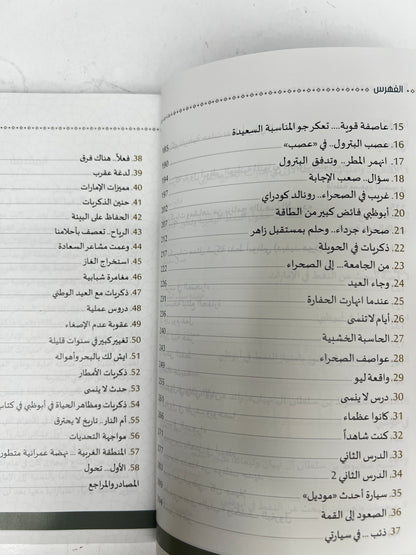 الفهرس
15. عاصفة قوية.... تعكر جو المناسبة السعيدة
16. عصب البترول.. في «عصب»
17. انهمر المطر.. وتدفق البترول
18. سؤال.. صعب الإجابة
19. غريب في الصحراء.. رونالد كودراي
20. أبوظبي فائض كبير من الطاقة
21. صحراء جرداء.. وحلم بمستقبل زاهر
22. ذكريات في الحويلة
23. من الجامعة... إلى الصحراء
24. وجاء العيد
25. عندما انهارت الحفارة
26. أيام لا تنسى
27. الحاسبة الخشبية
28. عواصف الصحراء
29. واقعة ليو
30. درس لا ينسى
31. كانوا عظماء
32. كنت شاهداً
33. الدرس الثاني
34. الدرس الثاني 2
35. سيارة أحدث «موديل»
36. الصعود إلى القمة
37. ذئب .. في سيارتي
38. فعلاً.. هناك فرق
39. لدغة عقرب
40. مميزات الإمارات
41. حنين الذكريات
42. الحفاظ على البيئة
43. الرياح.. تعصف بأحلامنا
44. وعمت مشاعر السعادة
45. استخراج الغاز
46. مغامرة شبابية
47. ذكريات مع العيد الوطني
48. دروس عملية
49. عقوبة عدم الإصغاء
50. تغيير كبير في سنوات قليلة
51. ايش لك بالبحر وأهواله
52. ذكريات الأمطار
53. حدث لا ينسى
54. ذكريات ومظاهر الحياة في أبوظبي في كتاب
55. أم النار.. تاريخ لا يحترق
56. مواجهة التحديات
57. المنطقة الغربية .. نهضة عمرانية
58. الأول.. تحول
المصادر والمراجع